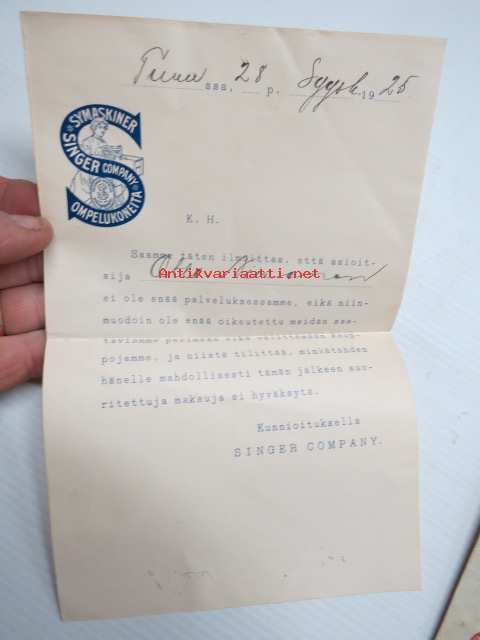 ssa, 28 p. Syysk. 1925
SYMASKINER
SINGER COMPANY
OMPELUKONEITA
K. H.
Saamme täten ilmoittaa, että asioit-
sija
Antiikvariaatti.net
ei ole enää palveluksessamme, eikä niin-
muodoin ole enää oikeutettu meidän saa-
taviamme perimään eikä välittämään kaup-
pojamme, ja niistä tilittää, minkätähden
hänelle mahdollisesti tämän jälkeen suo-
ritettuja maksuja ei hyväksytä.
Kunnioituksella
SINGER COMPANY.